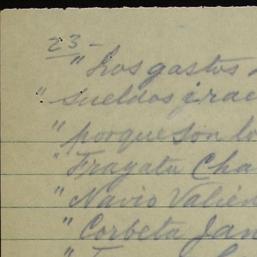 23-
" Los gastos
" sueldos i rac
" porque son lo
" Fragata Cha
" Navio Valien
" Corbeta Jan
"